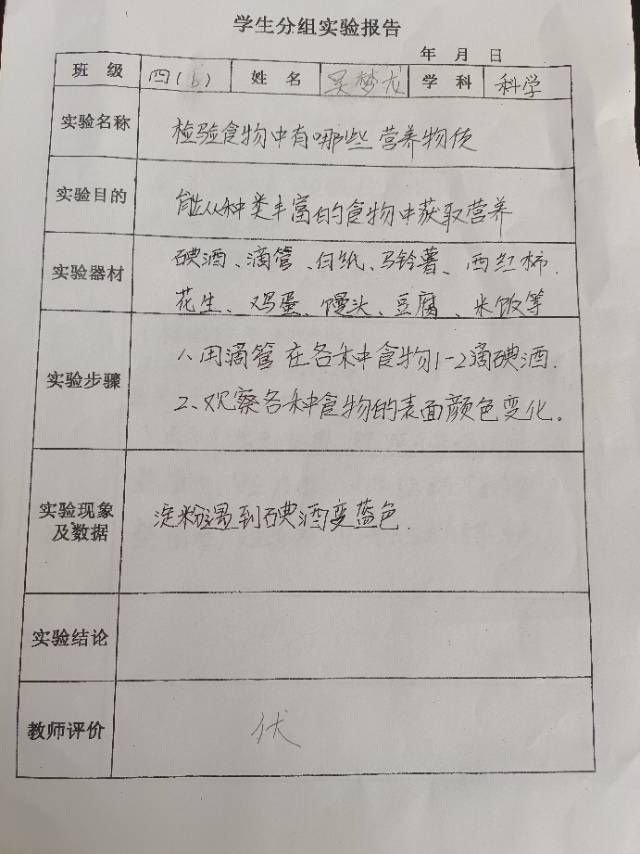 学生分组实验报告
年 月 日
班 级 四(6) 姓 名 吴梦龙 学 科 科学
实验名称 检验食物中有哪些营养物质
实验目的 能从种类丰富的食物中获取营养
实验器材 碘酒、滴管、白纸、马铃薯、西红柿、
花生、鸡蛋、馒头、豆腐、米饭等
实验步骤 1、用滴管在各种食物1-2滴碘酒.
2、观察各种食物的表面颜色变化.
实验现象及数据 淀粉遇到碘酒变蓝色.
实验结论
教师评价 优